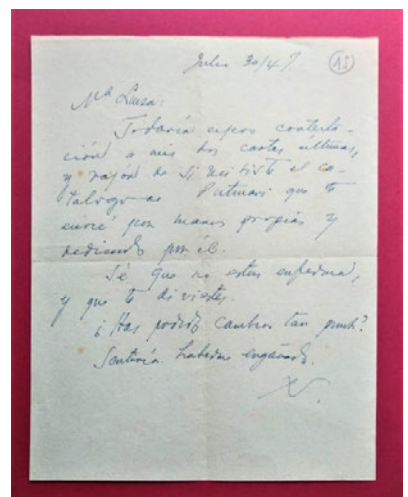 Julio 30/47. (15)
Mª Luisa:
Todavía espero contesta-
ción a mis dos cartas últimas,
y razón de si recibiste el ca-
talogo de que te
envié por manos propias y
dedicando por él.
Sé que no estas enferma,
y que te diviertes.
¿Has podido cambiar tan pronto?
Sentiría haberme engañado.
X.